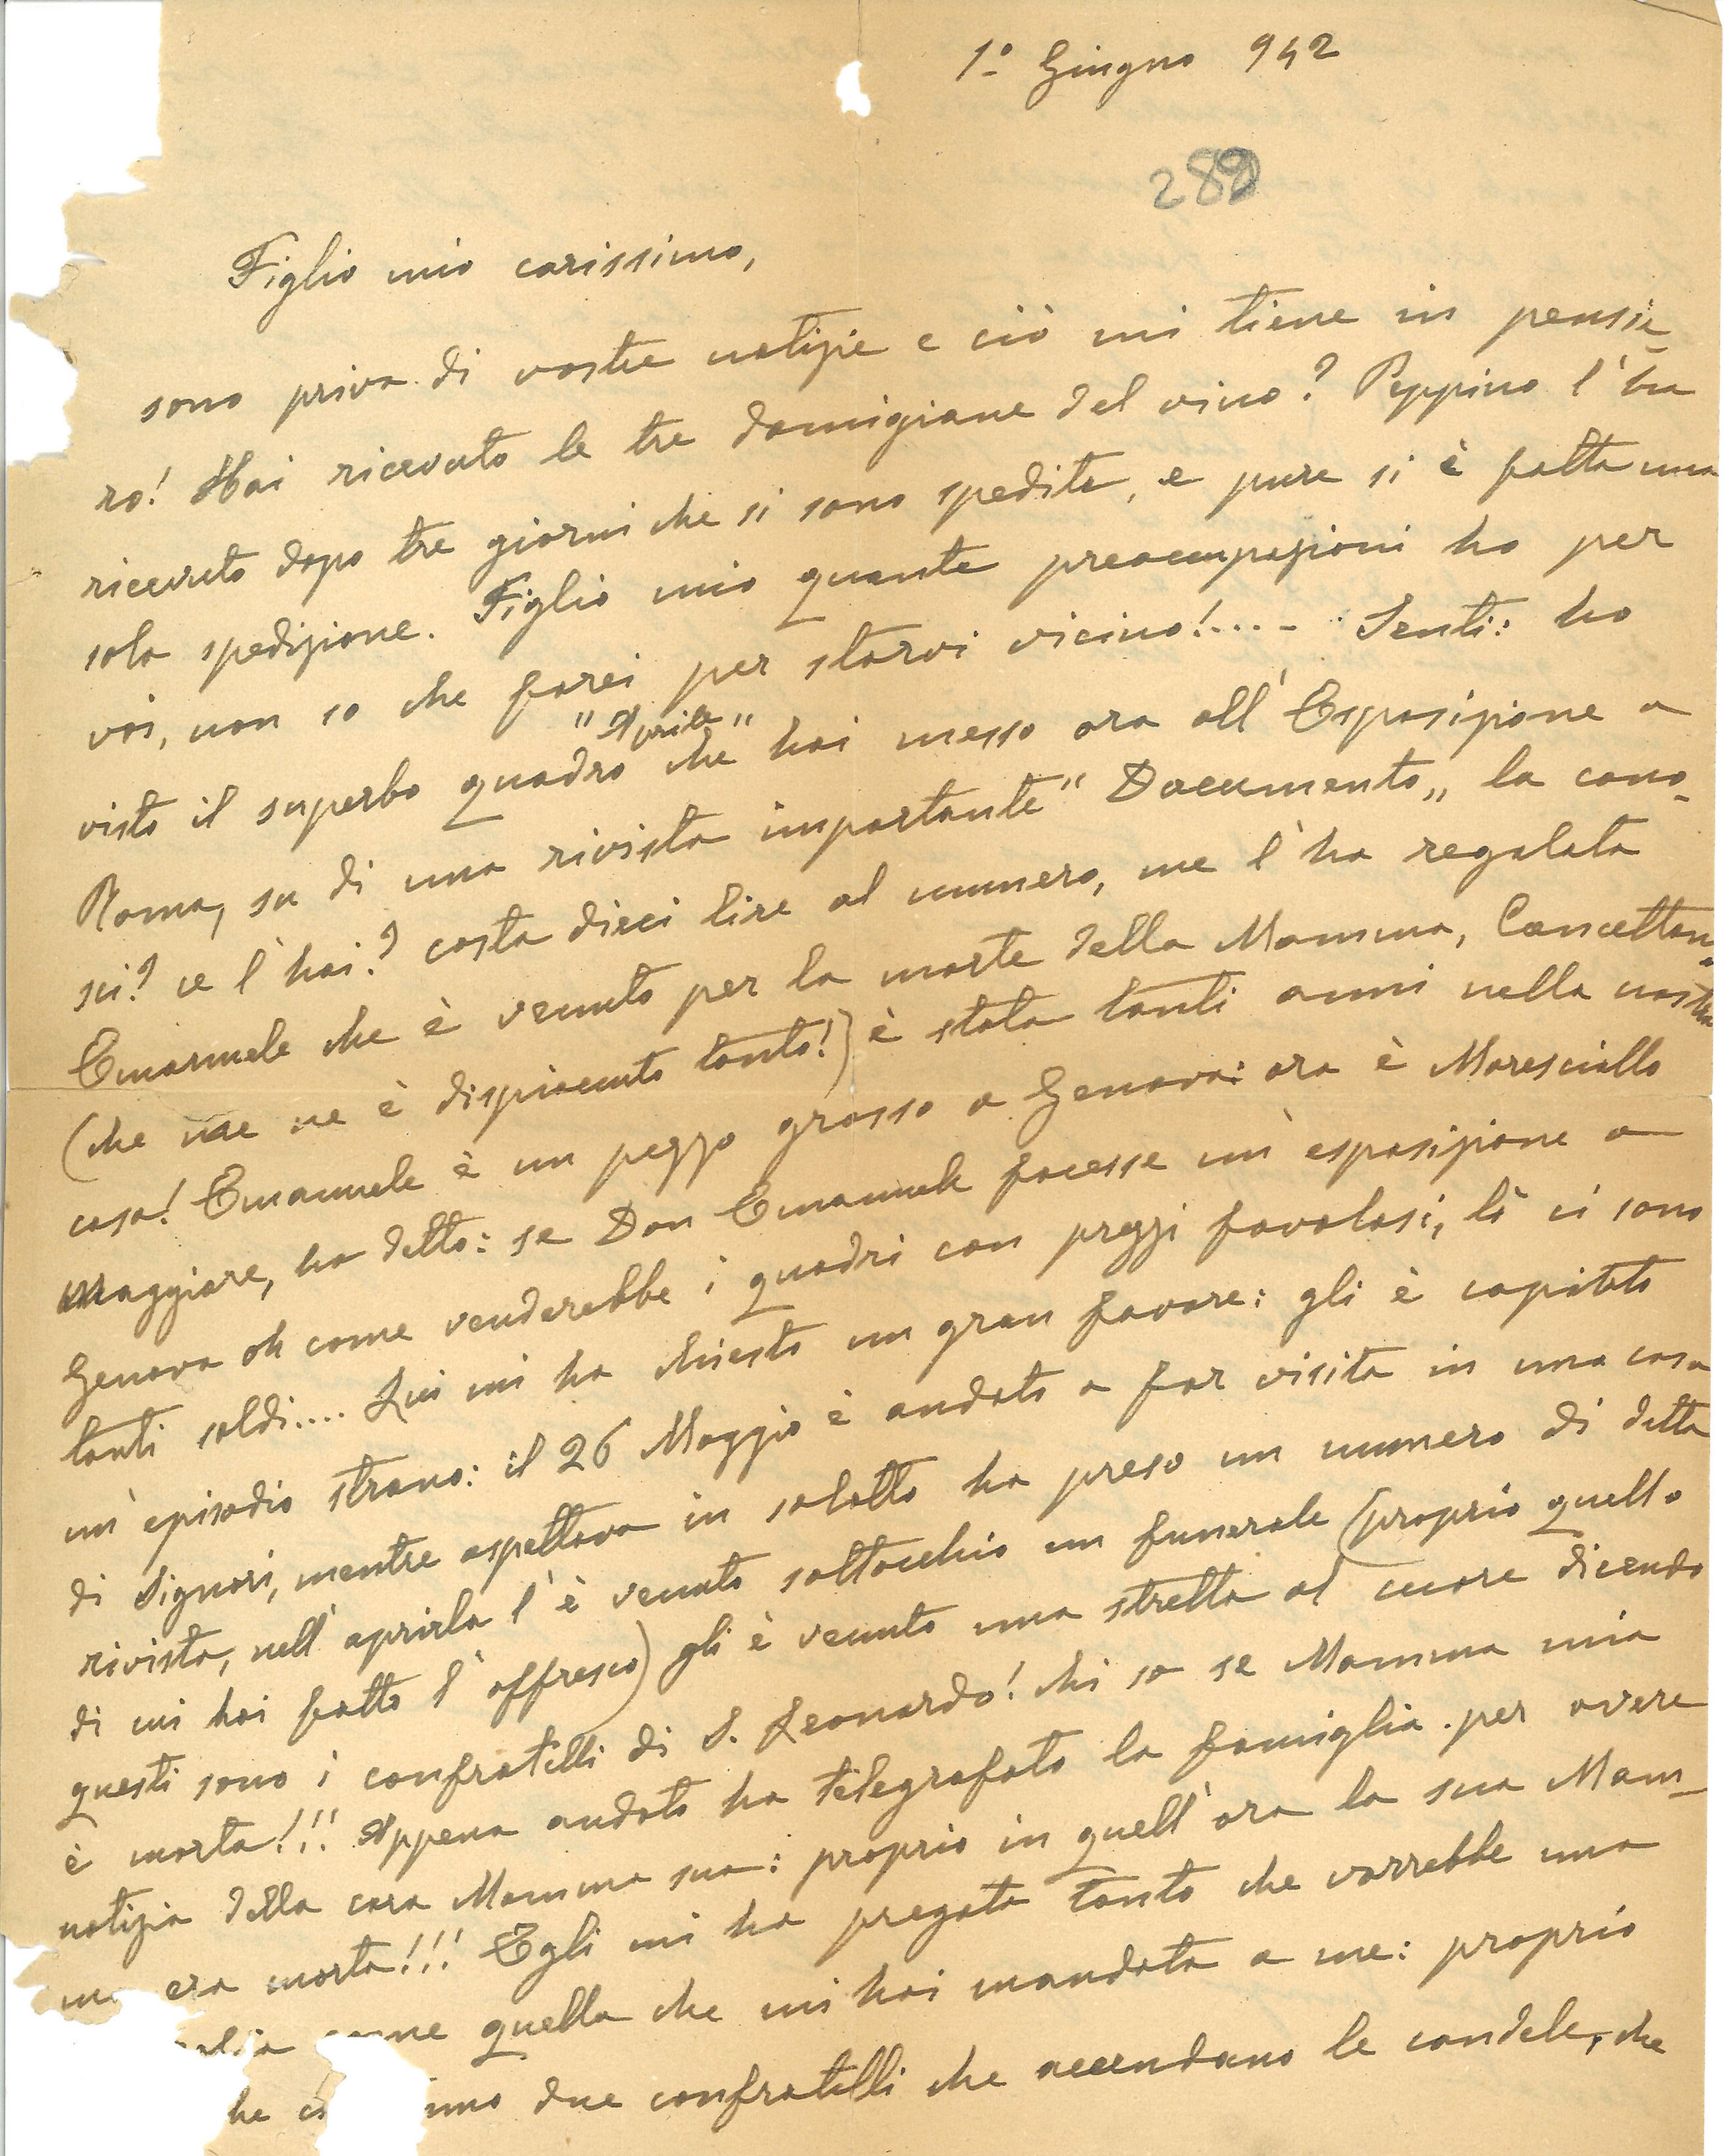 1º Giugno 942
289
Figlio mio carissimo,
sono priva di vostre notizie e ciò mi tiene in pensie_
ro! Hai ricevuto le tre damigiane del vino? Peppino l'ha
ricevuto dopo tre giorni che si sono spedite, e pure si è fatta una
sola spedizione. Figlio mio quante preoccupazioni ho per
voi, non so che farei per starvi vicino!.... Senti: ho
"Aprile"
visto il superbo quadro che hai messo ora all'Esposizione a
Roma, su di una rivista importante "Documento„ la cono_
sci? ce l'hai? costa dieci lire al numero, me l'ha regalata
Emanuele che è venuto per la morte della Mamma, Concettan_
(che me ne è dispiaciuto tanto!) è stata tanti anni nella nostra
casa! Emanuele è un pezzo grosso a Genova: ora è Maresciallo
Maggiore, ha detto: se Don Emanuele facesse un'esposizione a
Genova oh come venderebbe i quadri con prezzi favolosi, là ci sono
tanti soldi.... Lui mi ha chiesto un gran favore: gli è capitato
un'episodio strano: il 26 Maggio è andato a far visita in una casa
di Signori, mentre aspettava in salotto ha preso un numero di detta
rivista, nell'aprirla l'è venuto sottocchio un funerale (proprio quello
di cui hai fatto l'affresco) gli è venuto una stretta al cuore dicendo
questi sono i confratelli di S. Leonardo! chi sa se Mamma mia
è morta!!! Appena andato ha telegrafato la famiglia per avere
notizia della cara Mamma sua: proprio in quell'ora la sua Mam_
ma era morta!!! Egli mi ha pregata tanto che vorrebbe una
come quella che mi hai mandata a me: proprio
due confratelli che accendano le candele, che